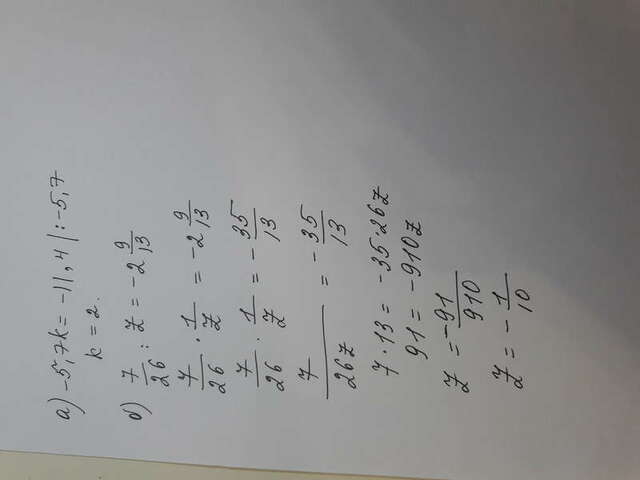 а) -5,7k = -11,4 | : -5,7
k = 2.
б) 7/26 : z = -2 9/13
7/26 · 1/z = -2 9/13
7/26 · 1/z = - 35/13
7/26z = - 35/13
7 · 13 = -35 · 26z
91 = -910z
z = -91/910
z = - 1/10